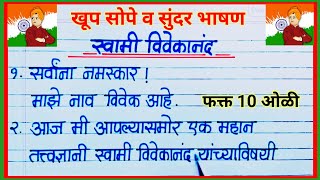 खूप सोपे व सुंदर भाषण
स्वामी विवेकानंद
१. सर्वांना नमस्कार !
माझे नाव विवेक आहे. फक्त 10 ओळी
२. आज मी आपल्यासमोर एक महान
तत्त्वज्ञानी स्वामी विवेकानंद यांच्याविषयी